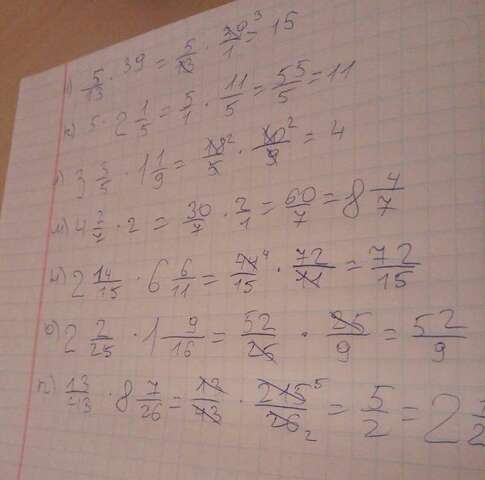 5/13 · 39 = 5/13 · 39³/1 = 15
к) 5 · 2 1/5 = 5/1 · 11/5 = 55/5 = 11
л) 3 3/5 · 1 1/9 = 18²/5 · 10²/9 = 4
м) 4 2/7 · 2 = 30/7 · 2/1 = 60/7 = 8 4/7
н) 2 14/15 · 6 6/11 = 44⁴/15 · 72/11 = 72/15
о) 2 2/25 · 1 9/16 = 52/25 · 25/9 = 52/9
п) 13/43 · 8 7/26 = 13/43 · 215⁵/26₂ = 5/2 = 2 1/2